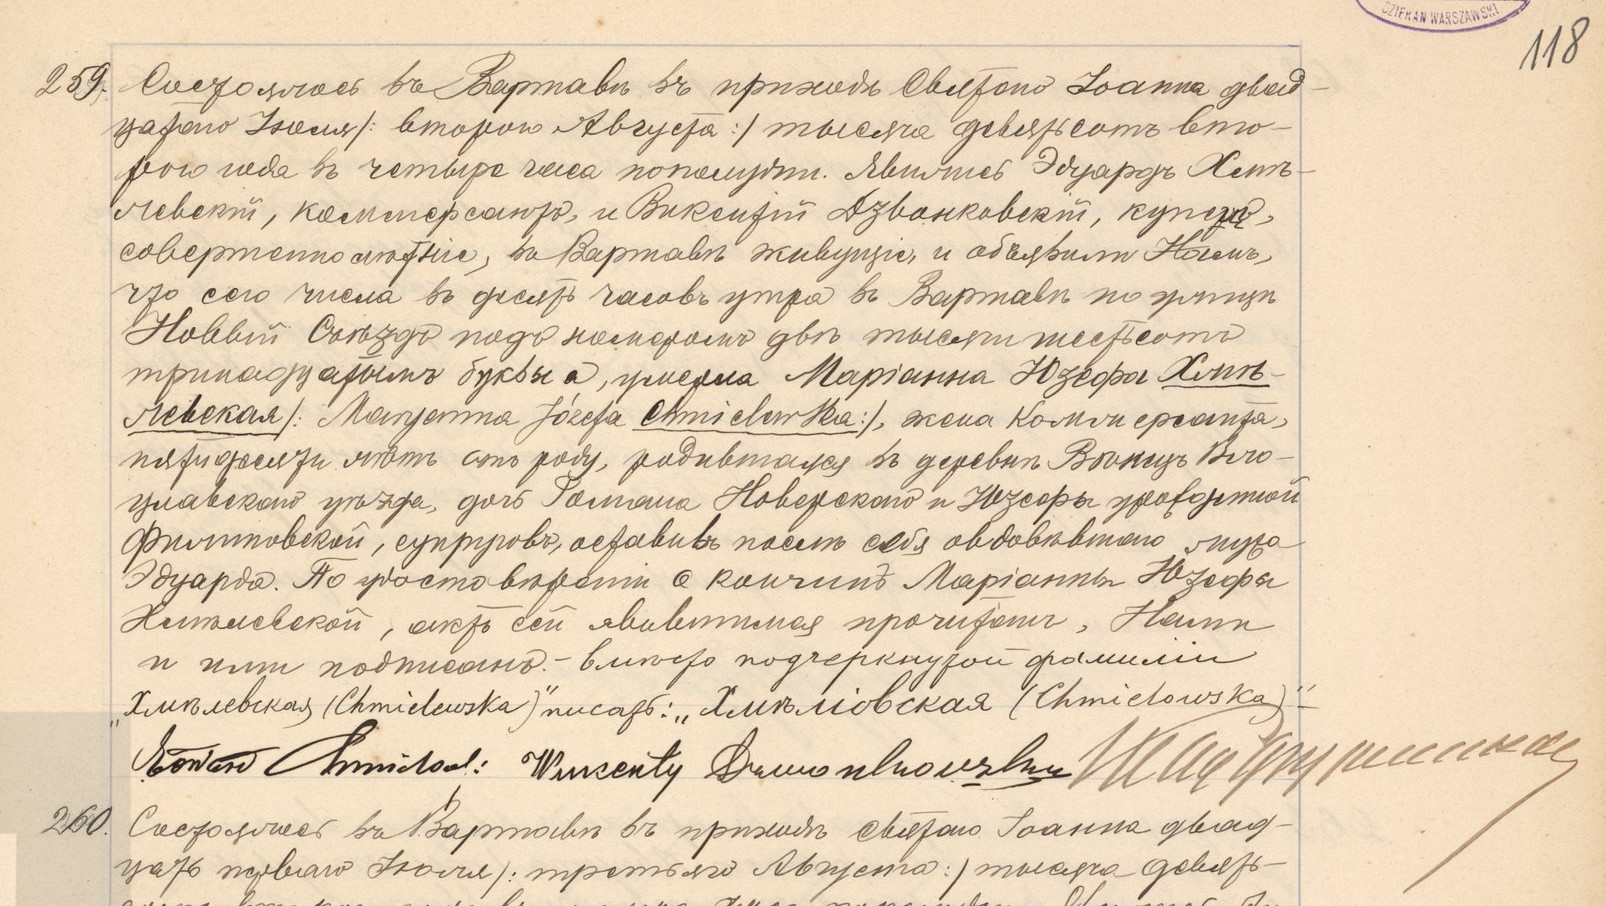 DZIEKAN WARSZAWSKI
118
259. Состоялось въ Варшавѣ въ приходѣ Святаго Іоанна двад-
цатаго Іюля /: втораго Августа :/ тысяча девятьсотъ вто-
раго года въ четыре часа пополудни. Явились Эдуардъ Хмѣ-
левскій, коммерсантъ, и Викентій Дзвонковскій, купецъ,
совершеннолѣтніе, въ Варшавѣ живущіе, и объявили Намъ,
что сего числа въ десять часовъ утра въ Варшавѣ по улицѣ
Новый Съѣздъ подъ номеромъ двѣ тысячи шестьсотъ
тринадцатымъ буквы а, умерла Маріанна Юзефа Хмѣ-
левская /: Maryanna Józefa Chmielewska :/, жена коммерсанта,
пятидесяти лѣтъ отъ роду, родившаяся въ деревнѣ Вло-
цлавскаго уѣзда, дочь Романа Новерскаго и Юзефы урожденной
Филиповской, супруговъ, оставивъ послѣ себя овдовѣвшаго мужа
Эдуарда. По удостовѣреніи о кончинѣ Маріанны Юзефы
Хмѣлевской, актъ сей явившимся прочитанъ, Нами
и ими подписанъ. – вмѣсто подчеркнутой фамиліи
„Хмѣлевская (Chmielewska)" писать: „Хмѣліовская (Chmielowska)"–
Edward Chmielow: Wincenty Dzwonkowski
260. Состоялось въ Варшавѣ въ приходѣ Святаго Іоанна двад-
цать перваго Іюля /: третьяго Августа :/ тысяча девять-